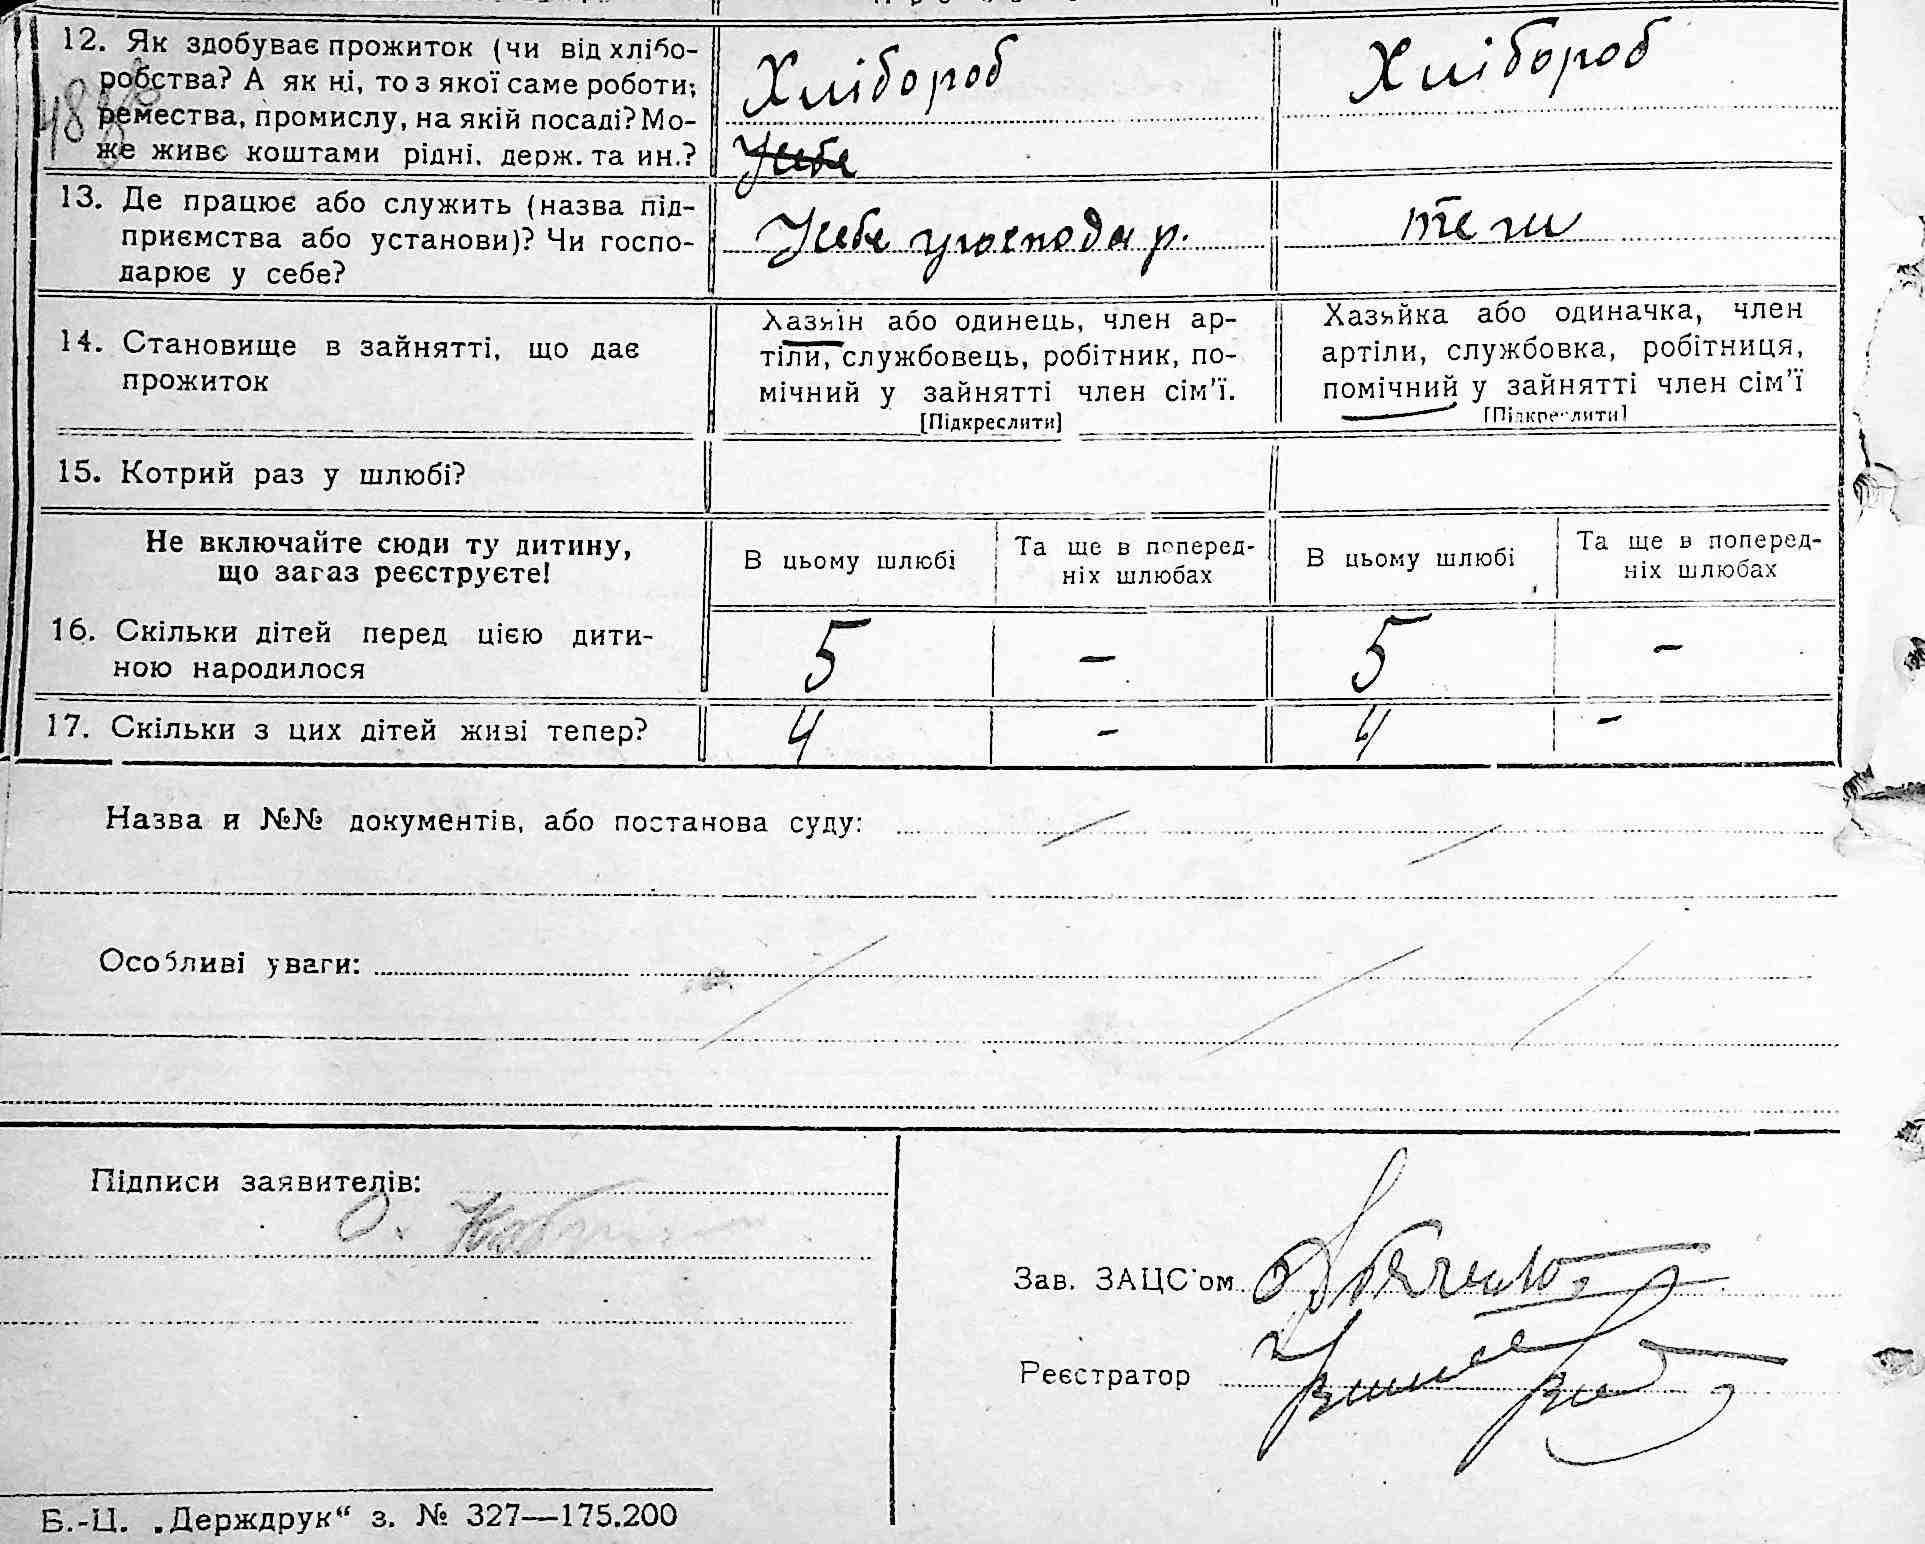 12. Як здобуває прожиток (чи від хлібо-
робства? А як ні, то з якої саме роботи;
ремества, промислу, на якій посаді? Мо-
же живе коштами рідні, держ. та ин.?
Хлібороб
У себе
Хлібороб
13. Де працює або служить (назва під-
приємства або установи)? Чи госпо-
дарює у себе?
У себе у господар.
теж
14. Становище в зайнятті, що дає
прожиток
Хазяїн або одинець, член ар-
тіли, службовець, робітник, по-
мічний у зайнятті член сім'ї.
[Підкреслити]
Хазяйка або одиначка, член
артіли, службовка, робітниця,
помічний у зайнятті член сім'ї
[Підкреслити]
15. Котрий раз у шлюбі?
Не включайте сюди ту дитину,
що зараз реєструєте!
В цьому шлюбі
Та ще в поперед-
ніх шлюбах
В цьому шлюбі
Та ще в поперед-
ніх шлюбах
16. Скільки дітей перед цією дити-
ною народилося
5 - 5 -
17. Скільки з цих дітей живі тепер?
4 - 4 -
Назва и №№ документів, або постанова суду:
Особливі уваги:
Підписи заявителів:
О.
Зав. ЗАЦС'ом
Реєстратор
Б.-Ц. „Держдрук“ з. № 327—175.200